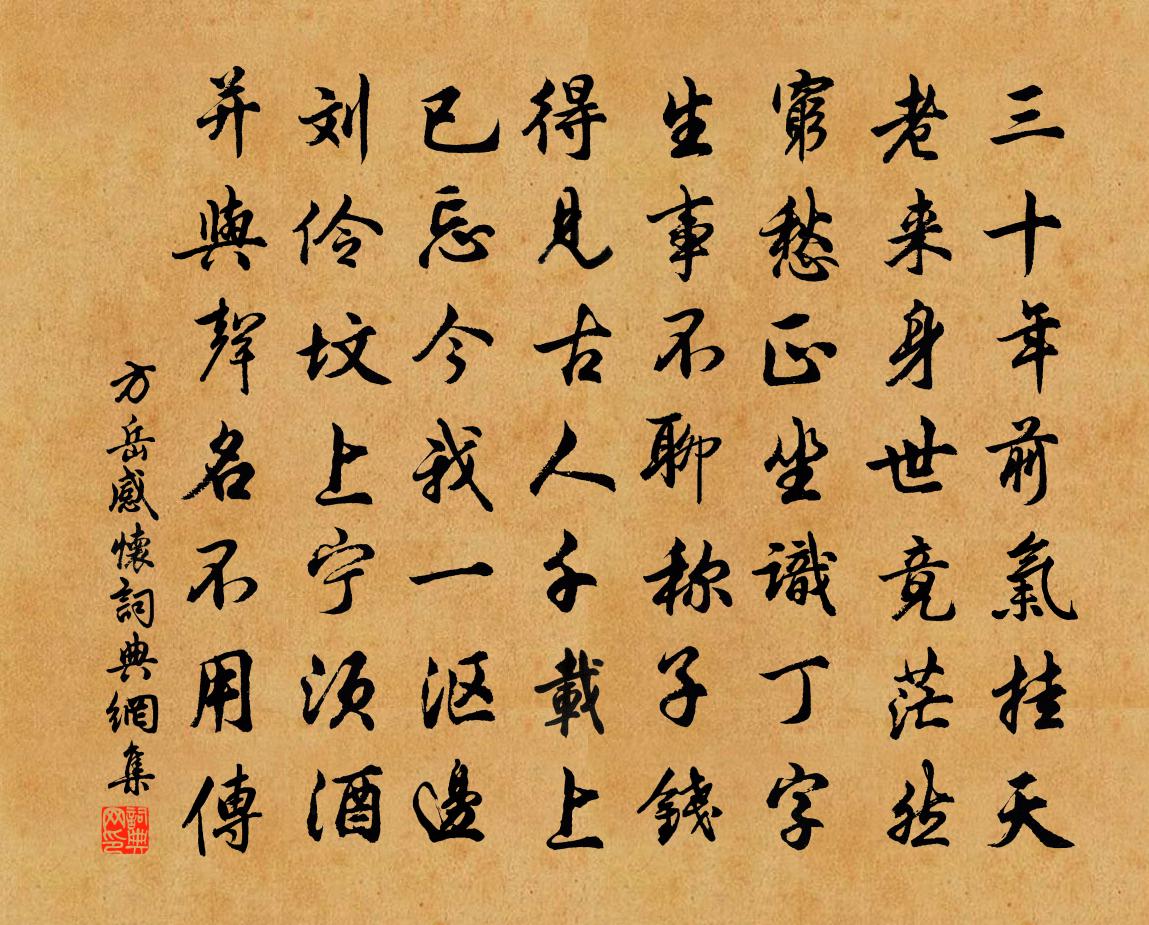 三十年前氣挂天
老来身世竟茫然
窮愁正坐識丁字
生事不聊称子錢
得見古人千載上
已忘今我一漚邊
刘伶坟上宁須酒
并與聲名不用傳
方岳感懷詞典網集
詞典网印